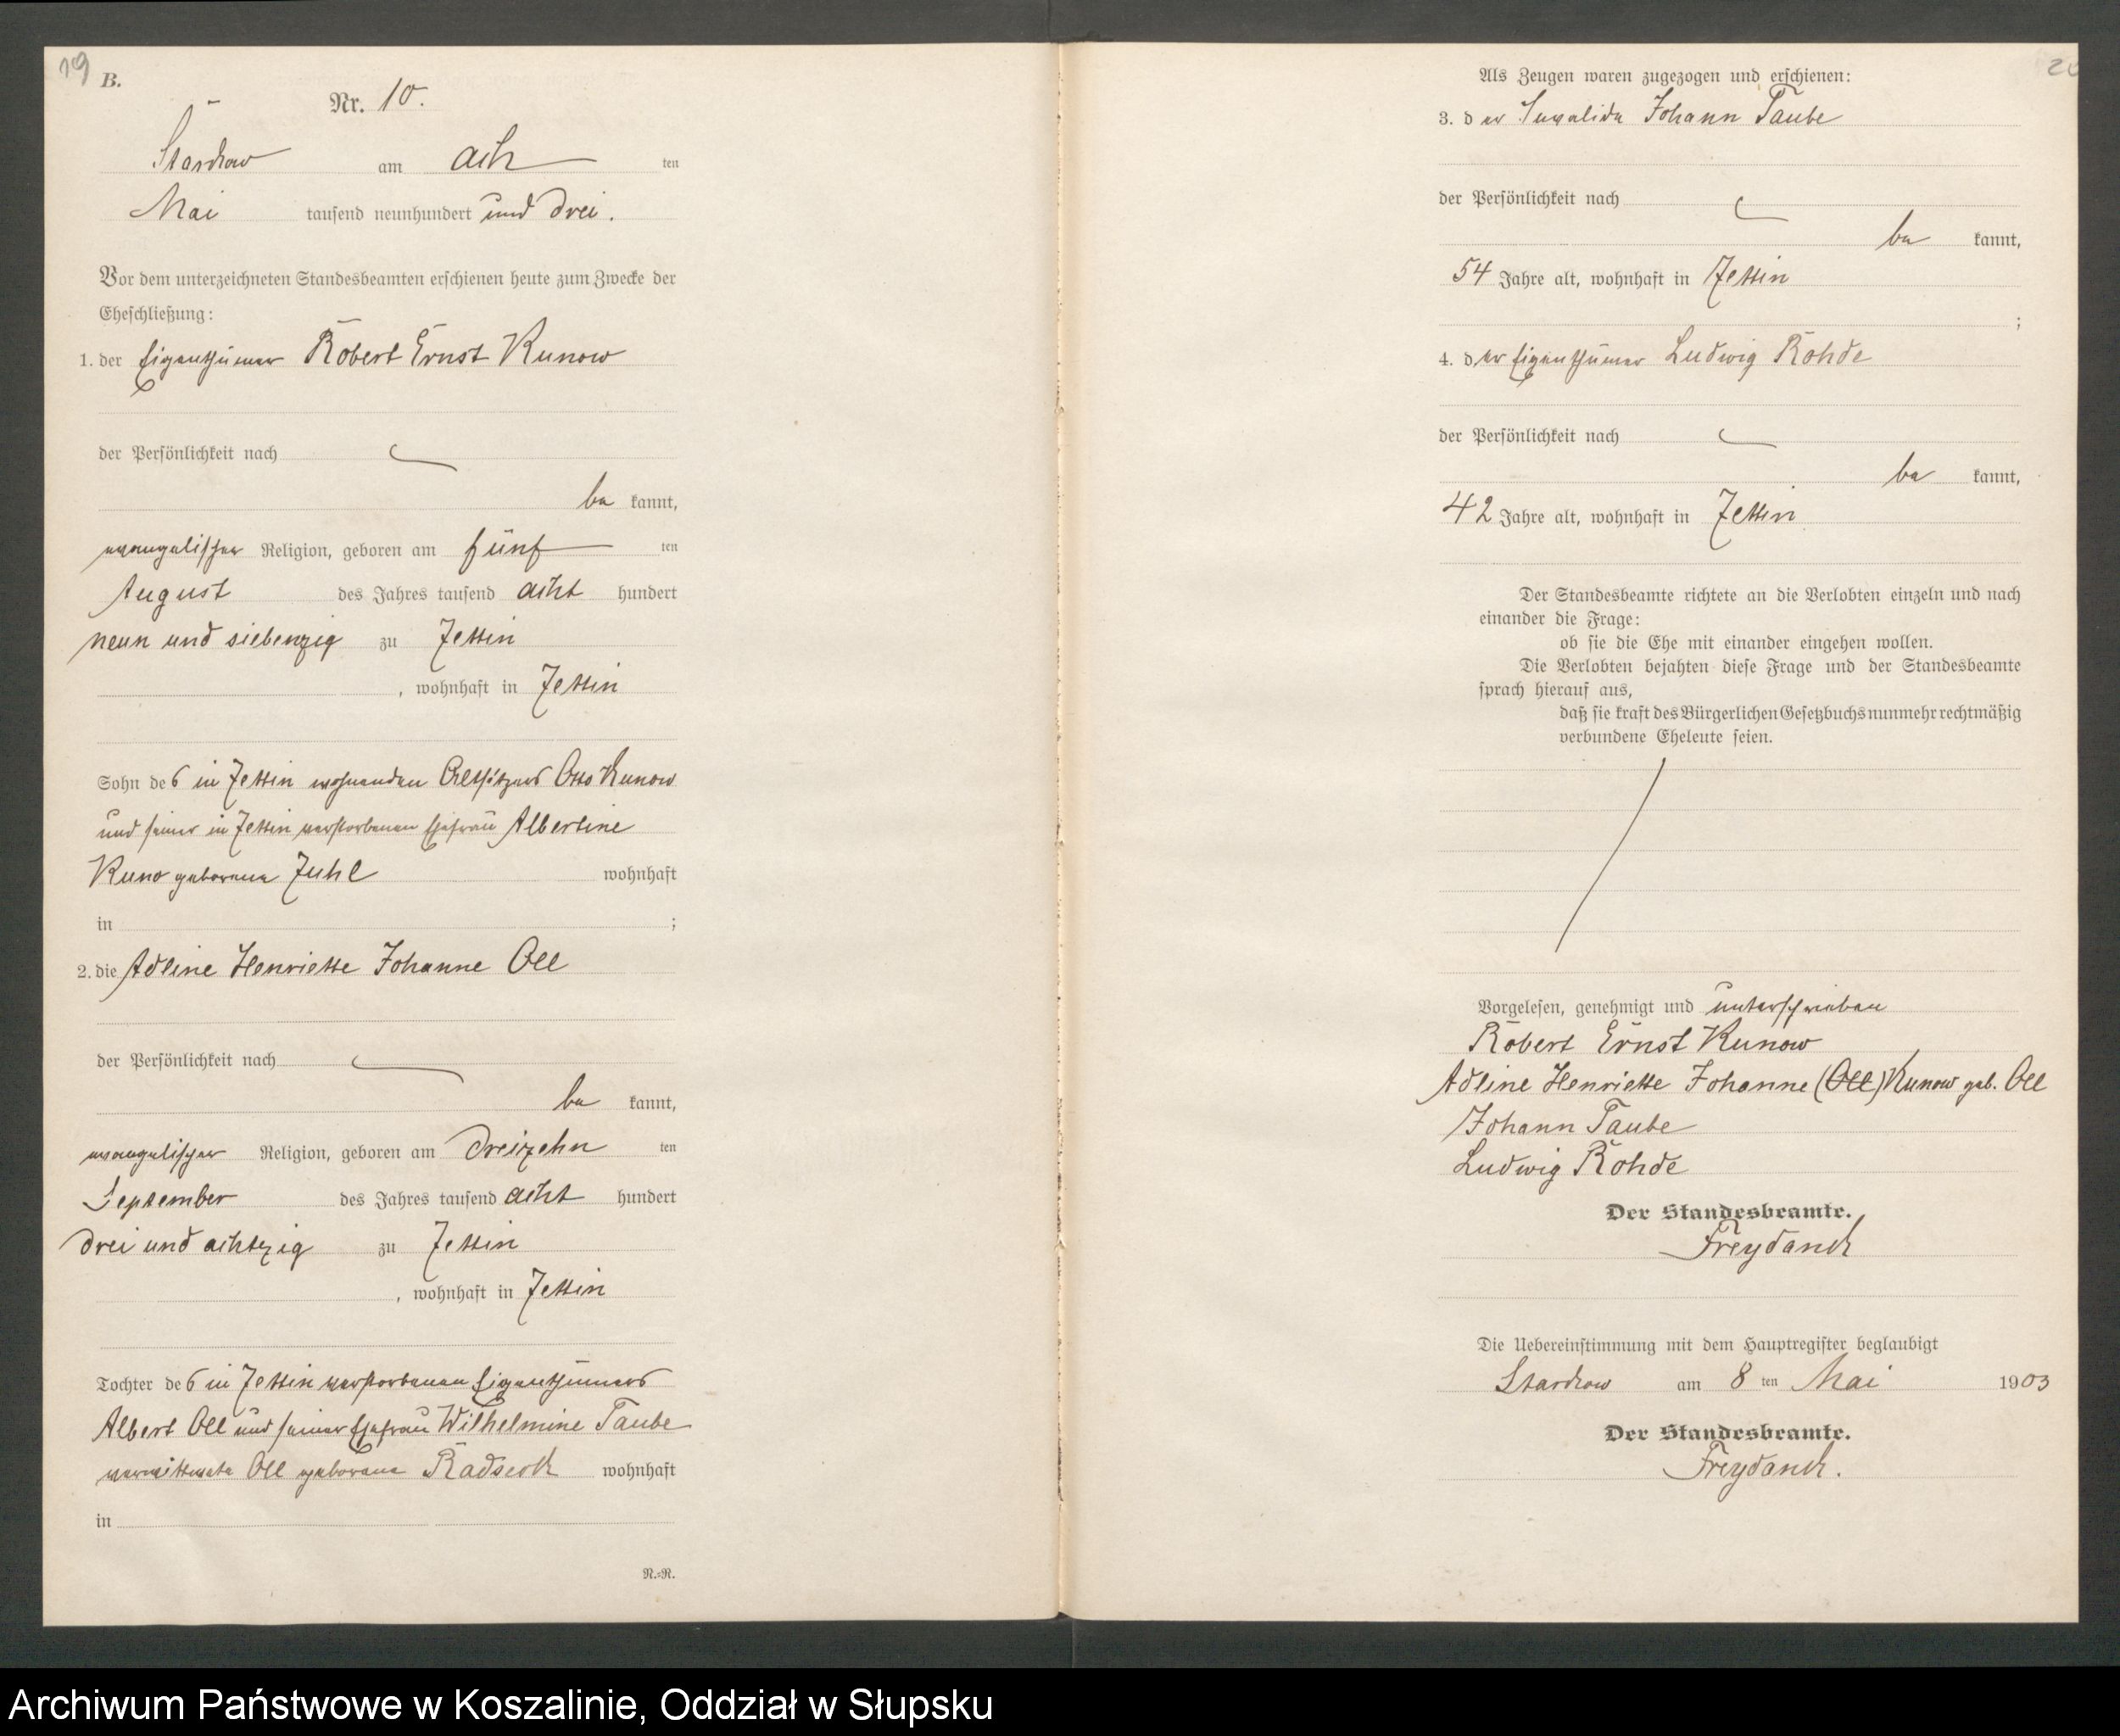 19
B.
Nr. 10.
Starckow am ach ten
Mai tausend neunhundert und drei.
Vor dem unterzeichneten Standesbeamten erschienen heute zum Zwecke der
Eheschließung:
1. der Eigenthümer Robert Ernst Kunow
der Persönlichkeit nach
be kannt,
evangelischer Religion, geboren am fünf ten
August des Jahres tausend acht hundert
neun und siebenzig zu Zettin
, wohnhaft in Zettin
Sohn des in Zettin wohnenden Altsitzers Otto Kunow
und seiner in Zettin verstorbenen Ehefrau Albertine
Kuno geborene Zuhl wohnhaft
in ;
2. die Adline Henriette Johanne Oll
der Persönlichkeit nach
be kannt,
evangelischer Religion, geboren am dreizehn ten
September des Jahres tausend acht hundert
drei und achtzig zu Zettin
, wohnhaft in Zettin
Tochter des in Zettin verstorbenen Eigenthümers
Albert Oll und seiner Ehefrau Wilhelmine Taube
verwittwete Oll geborene wohnhaft
in
N.=R.
20
Als Zeugen waren zugezogen und erschienen:
3. der Invalide Johann Taube
der Persönlichkeit nach
be kannt,
54 Jahre alt, wohnhaft in Zettin
;
4. der Eigenthümer Ludwig Rohde
der Persönlichkeit nach
be kannt,
42 Jahre alt, wohnhaft in Zettin
Der Standesbeamte richtete an die Verlobten einzeln und nach
einander die Frage:
ob sie die Ehe mit einander eingehen wollen.
Die Verlobten bejahten diese Frage und der Standesbeamte
sprach hierauf aus,
daß sie kraft des Bürgerlichen Gesetzbuchs nunmehr rechtmäßig
verbundene Eheleute seien.
Vorgelesen, genehmigt und unterschrieben
Robert Ernst Kunow
Adline Henriette Johanne (Oll) Kunow geb. Oll
Johann Taube
Ludwig Rohde
Der Standesbeamte.
Freydanck
Die Uebereinstimmung mit dem Hauptregister beglaubigt
Starckow am 8 ten Mai 1903
Der Standesbeamte.
Freydanck.
Archiwum Państwowe w Koszalinie, Oddział w Słupsku